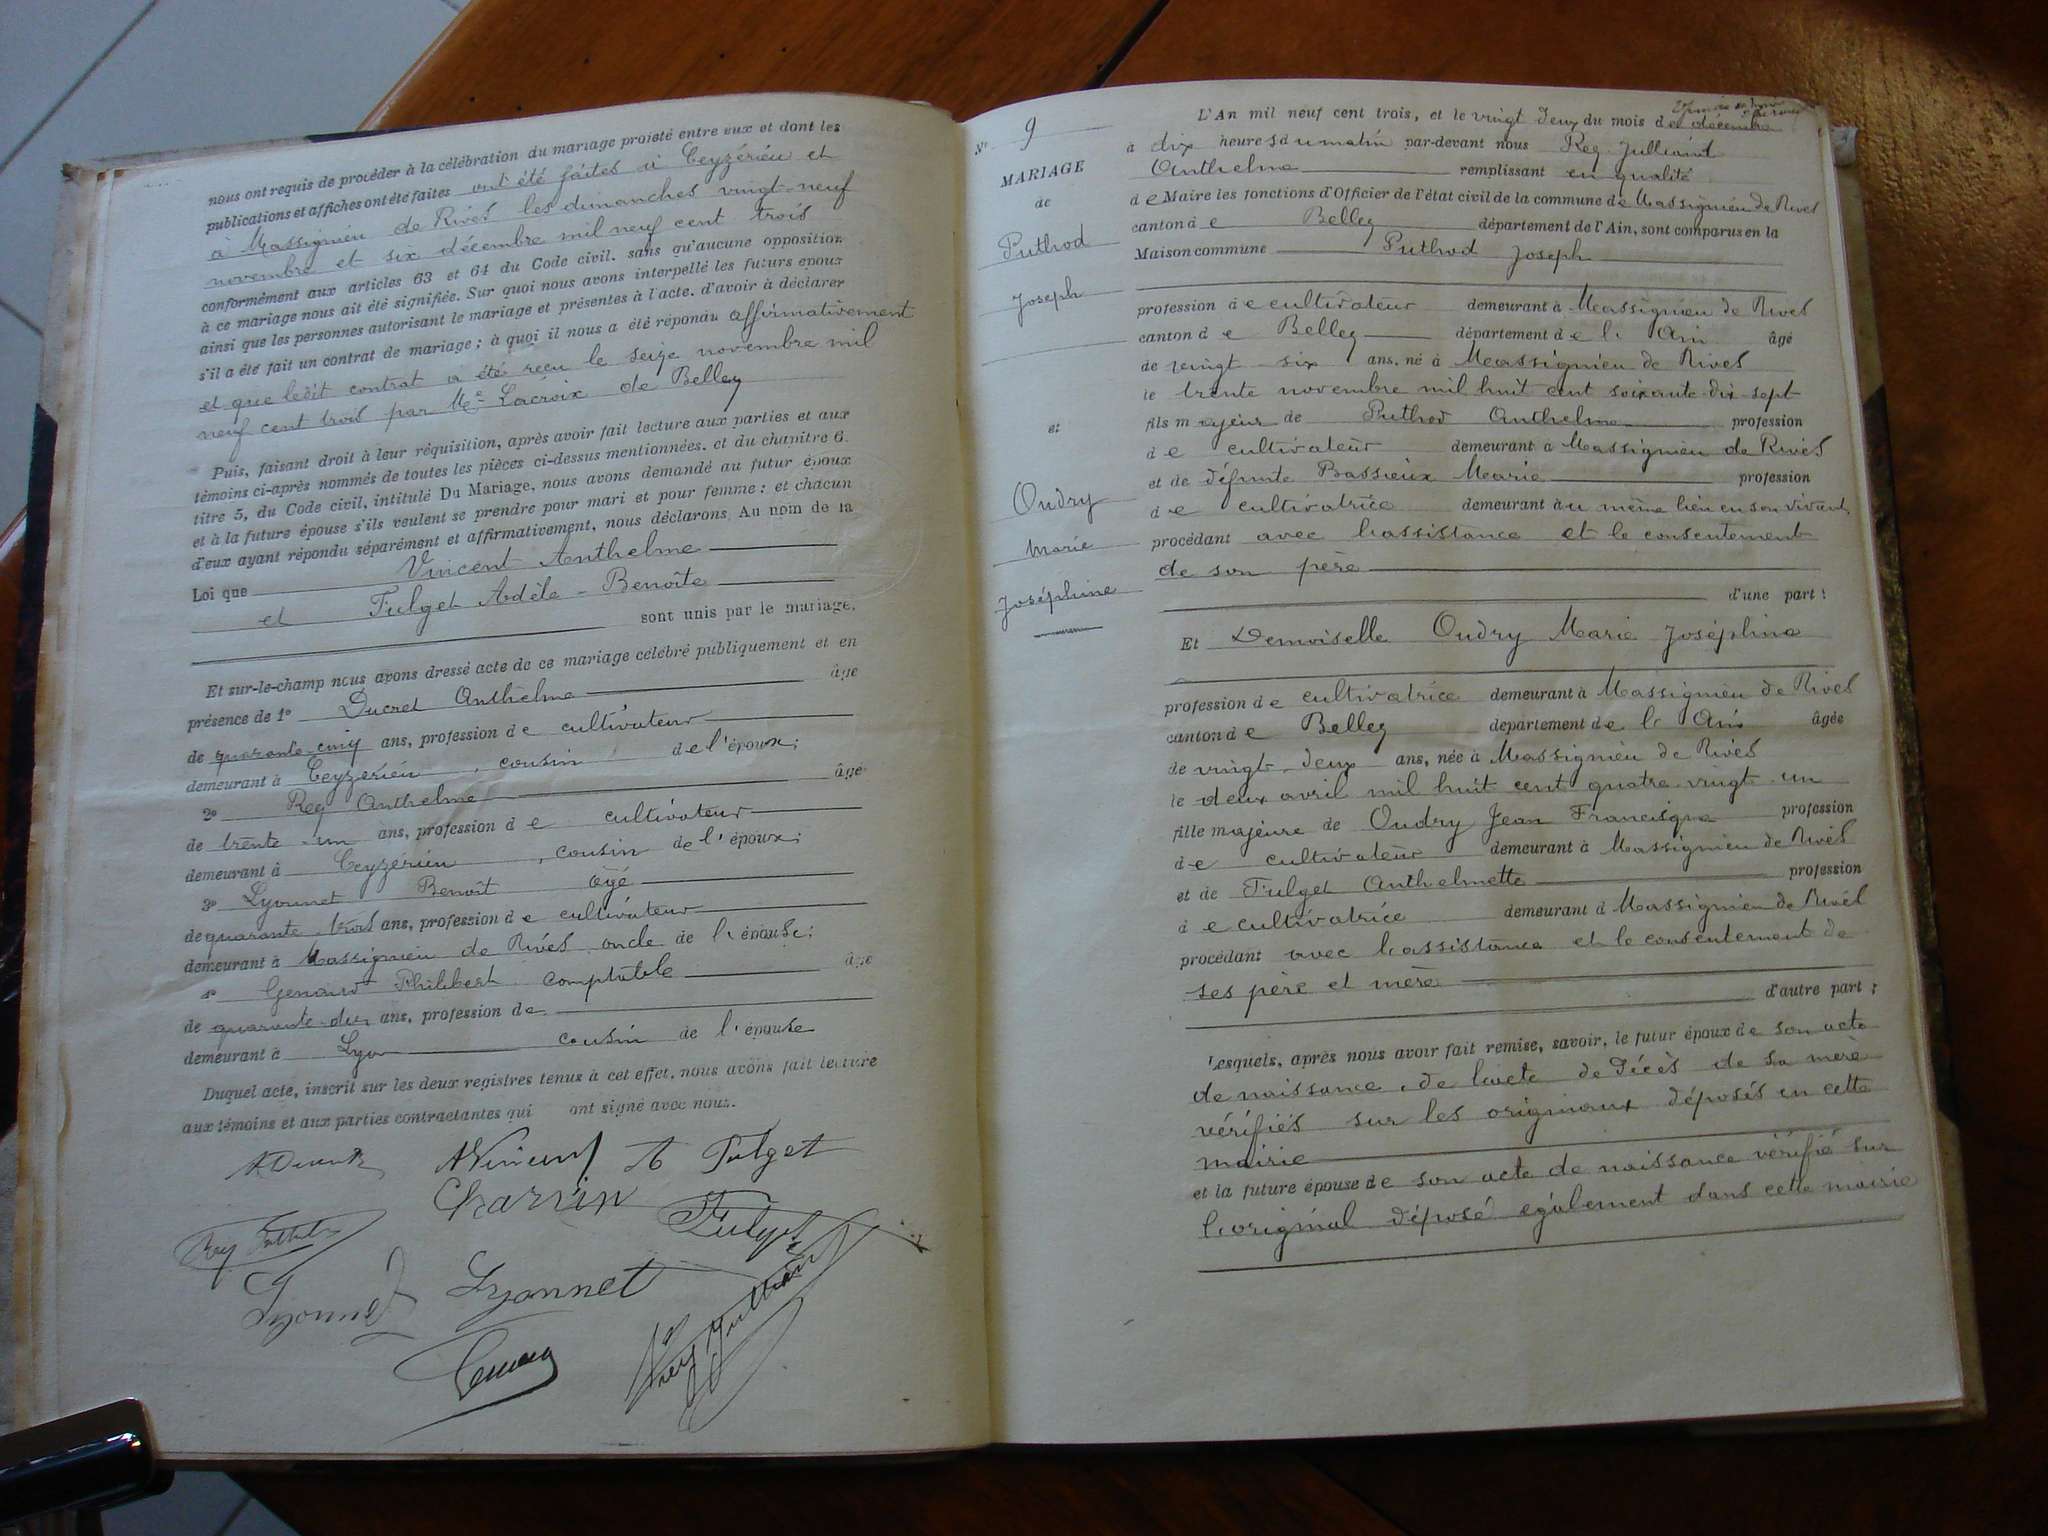 nous ont requis de procéder à la célébration du mariage projeté entre eux et dont les
publications et affiches ont été faites ont été faites à Ceyzérieu et
à Massignieu de Rives les dimanches vingt-neuf
novembre et six décembre mil neuf cent trois
conformément aux articles 63 et 64 du Code civil. sans qu'aucune opposition
à ce mariage nous ait été signifiée. Sur quoi nous avons interpellé les futurs époux
ainsi que les personnes autorisant le mariage et présentes à l'acte. d'avoir à déclarer
s'il a été fait un contrat de mariage ; à quoi il nous a été répondu affirmativement
et que ledit contrat a été reçu le seize novembre mil
neuf cent trois par Me Lacroix de Belley
Puis, faisant droit à leur réquisition, après avoir fait lecture aux parties et aux
témoins ci-après nommés de toutes les pièces ci-dessus mentionnées. et du chapitre 6.
titre 5, du Code civil, intitulé Du Mariage, nous avons demandé au futur époux
et à la future épouse s'ils veulent se prendre pour mari et pour femme : et chacun
d'eux ayant répondu séparément et affirmativement, nous déclarons Au nom de la
Loi que Vincent Anthelme
et Fulget Adèle - Benoîte
sont unis par le mariage.
Et sur-le-champ nous avons dressé acte de ce mariage célébré publiquement et en
présence de 1° Ducret Anthelme âgé
de quarante-cinq ans, profession de cultivateur
demeurant à Ceyzérieu, cousin de l'époux ;
2° Rey Anthelme âgé
de trente-un ans, profession de cultivateur
demeurant à Ceyzérieu, cousin de l'époux ;
3° Lyonnet Benoît âgé
de quarante-trois ans, profession de cultivateur
demeurant à Massignieu de Rives oncle de l'épouse ;
4° Philibert comptable âgé
de quarante-deux ans, profession de
demeurant à Lyon cousin de l'épouse
Duquel acte, inscrit sur les deux registres tenus à cet effet, nous avons fait lecture
aux témoins et aux parties contractantes qui ont signé avec nous.
A Vincent A Fulget
Charrin
Fulget
Lyonnet Lyonnet
N° 9
MARIAGE
de
Puthod
Joseph
et
Oudry
Marie
Joséphine
L'An mil neuf cent trois, et le vingt deux du mois de décembre
à dix heures du matin par-devant nous Rey Julliand
Anthelme remplissant en qualité
de Maire les fonctions d'Officier de l'état civil de la commune de Massignieu de Rives
canton de Belley département de l'Ain, sont comparus en la
Maison commune Puthod Joseph
profession de cultivateur demeurant à Massignieu de Rives
canton de Belley département de l'Ain âgé
de vingt-six ans, né à Massignieu de Rives
le trente novembre mil huit cent soixante-dix-sept
fils majeur de Puthod Anthelme profession
de cultivateur demeurant à Massignieu de Rives
et de défunte Bassieux Marie profession
de cultivatrice demeurant au même lieu en son vivant,
procédant avec l'assistance et le consentement
de son père
d'une part :
Et Demoiselle Oudry Marie Joséphine
profession de cultivatrice demeurant à Massignieu de Rives
canton de Belley département de l'Ain âgée
de vingt-deux ans, née à Massignieu de Rives
le deux avril mil huit cent quatre-vingt-un
fille majeure de Oudry Jean Francisque profession
de cultivateur demeurant à Massignieu de Rives
et de Fulget Anthelmette profession
de cultivatrice demeurant à Massignieu de Rives
procédant avec l'assistance et le consentement de
ses père et mère
d'autre part :
Lesquels, après nous avoir fait remise, savoir, le futur époux de son acte
de naissance, de l'acte de décès de sa mère
vérifiés sur les originaux déposés en cette
mairie
et la future épouse de son acte de naissance vérifié sur
l'original déposé également dans cette mairie